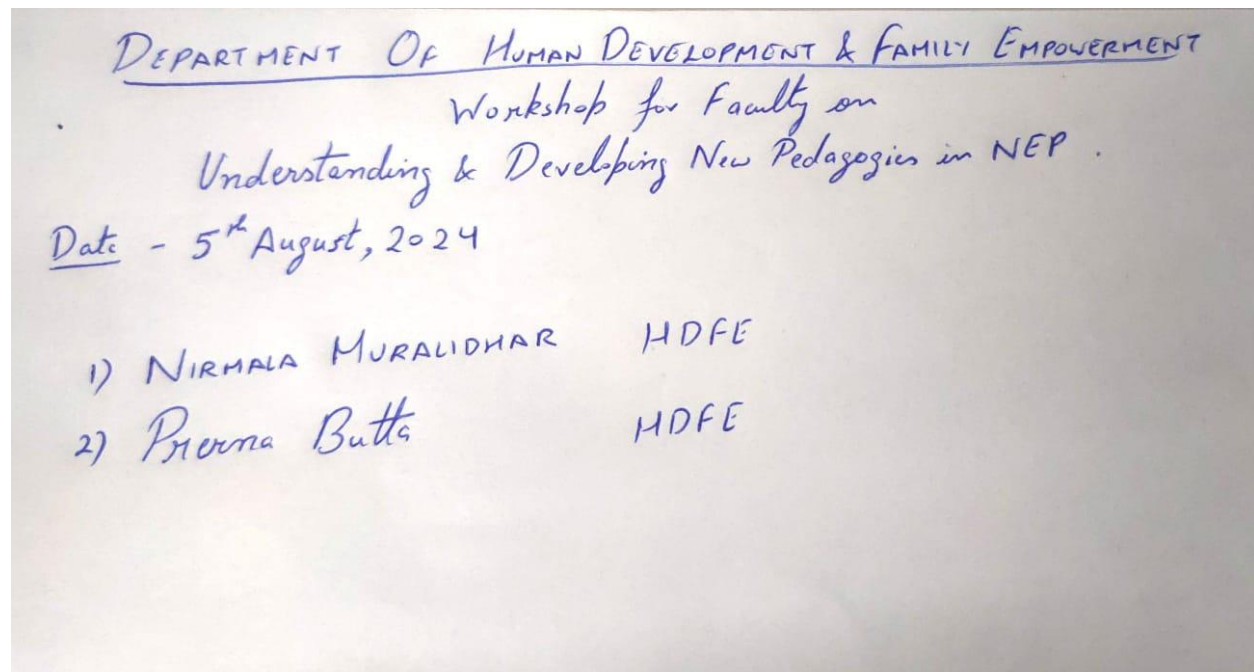 DEPARTMENT OF HUMAN DEVELOPMENT & FAMILY EMPOWERMENT
Workshop for Faculty on
Understanding & Developing New Pedagogies in NEP.
Date - 5th August, 2024
1) NIRMALA MURALIDHAR HDFE
2) Prerna Butta HDFE